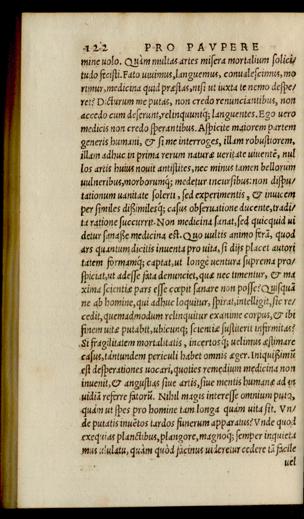 122 PRO PAVPERE
mine uolo. Quàm multas artes misera mortalium solici/
tudo fecisti. Fato uiuimus, languemus, conualescimus, mo
rimur, medicina quid præstas, nisi ut iuxta te nemo despe/
ret? Dicturum me putas, non credo renunciantibus, non
accedo cum deserunt, relinquuntq; languentes. Ego uero
medicis non credo sperantibus. Aspicite maiorem partem
generis humani, & si me interroges, illam robustiorem,
illam adhuc in prima rerum naturæ ueritate uiuentē, nul
los artis huius nouit antistites, nec minus tamen bellorum
uulneribus, morborumq; medetur incursibus: non dispu/
tationum uanitate solerti, sed experimentis, & inuicem
per similes dißimilesq; casus obseruatione ducente, tradi/
ta ratione succurrit. Non medicina sanat, sed quicquid ui
detur sanasse medicina est. Quo uultis animo ferā, quod
ars quantum dicitis inuenta pro uita, si dijs placet autori
tatem formamq; captat, ut longè uentura suprema pro/
spiciat, ut adesse fata denunciet, quæ nec timentur, & ma
xima scientiæ pars esse cœpit sanare non posse? Quisquā
ne ab homine, qui adhuc loquitur, spirat, intelligit, sic re/
cedit, quemadmodum relinquitur exanime corpus, & ibi
finem uitæ putabit, ubicunq; scientiæ substiterit infirmitas?
Si fragilitatem mortalitatis, incertosq; uelimus æstimare
casus, tantundem periculi habet omnis æger. Iniquißimū
est desperationes uocari, quoties remedium medicina non
inuenit, & angustias siue artis, siue mentis humanæ ad in
uidiā referre fatorū. Nihil magis interesse omnium puto,
quàm ut spes pro homine tam longa quàm uita sit. Vn/
de putatis inuētos tardos funerum apparatus? Vnde quod
exequias planctibus, plangore, magnoq; semper inquieta
mus ululatu, quàm quòd facinus uideretur cedere tā facile
uel